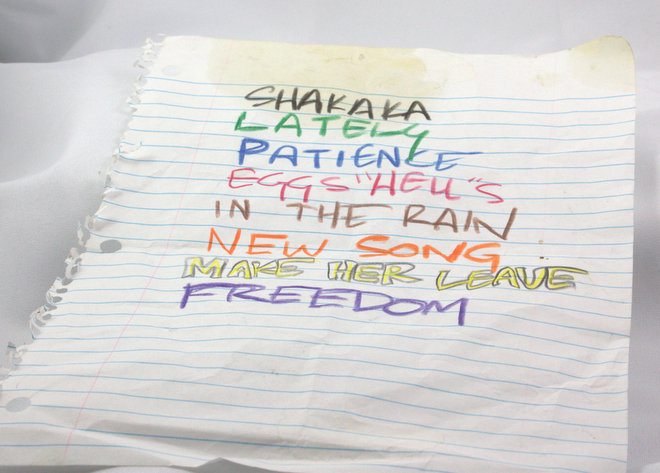 SHAKAKA
LATELY
PATIENCE
EGGS"HELL"S
IN THE RAIN
NEW SONG
MAKE HER LEAVE
FREEDOM